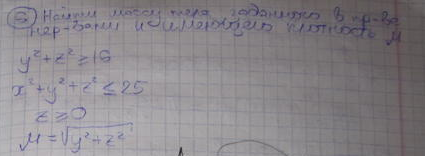 ⑥ Найти массу тела заданного в пр-ве
нер-вами и имеющего плотность μ
y²+z²≥16
x²+y²+z²≤25
z≥0
μ=√y²+z²